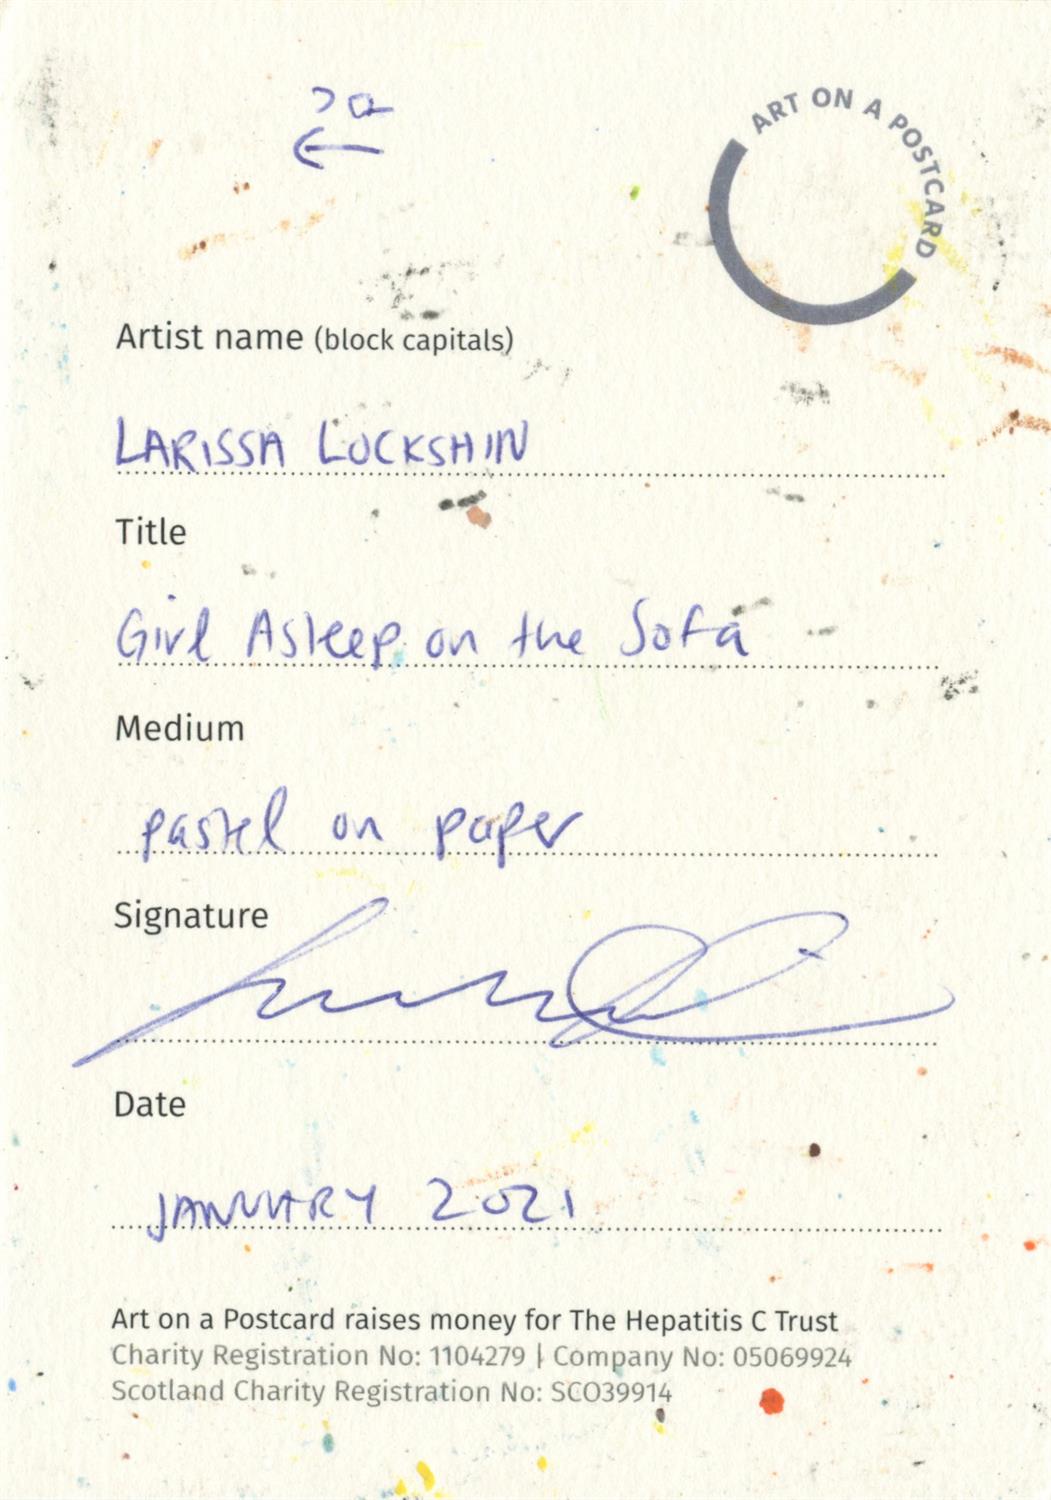 ART ON A POSTCARD
Artist name (block capitals)
LARISSA LOCKSHIN
Title
Girl Asleep on the Sofa
Medium
pastel on paper
Signature
Date
JANUARY 2021
Art on a Postcard raises money for The Hepatitis C Trust
Charity Registration No: 1104279 | Company No: 05069924
Scotland Charity Registration No: SCO39914